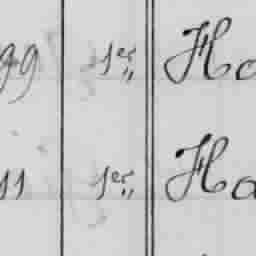 99 1er Ha
11 1er Ha